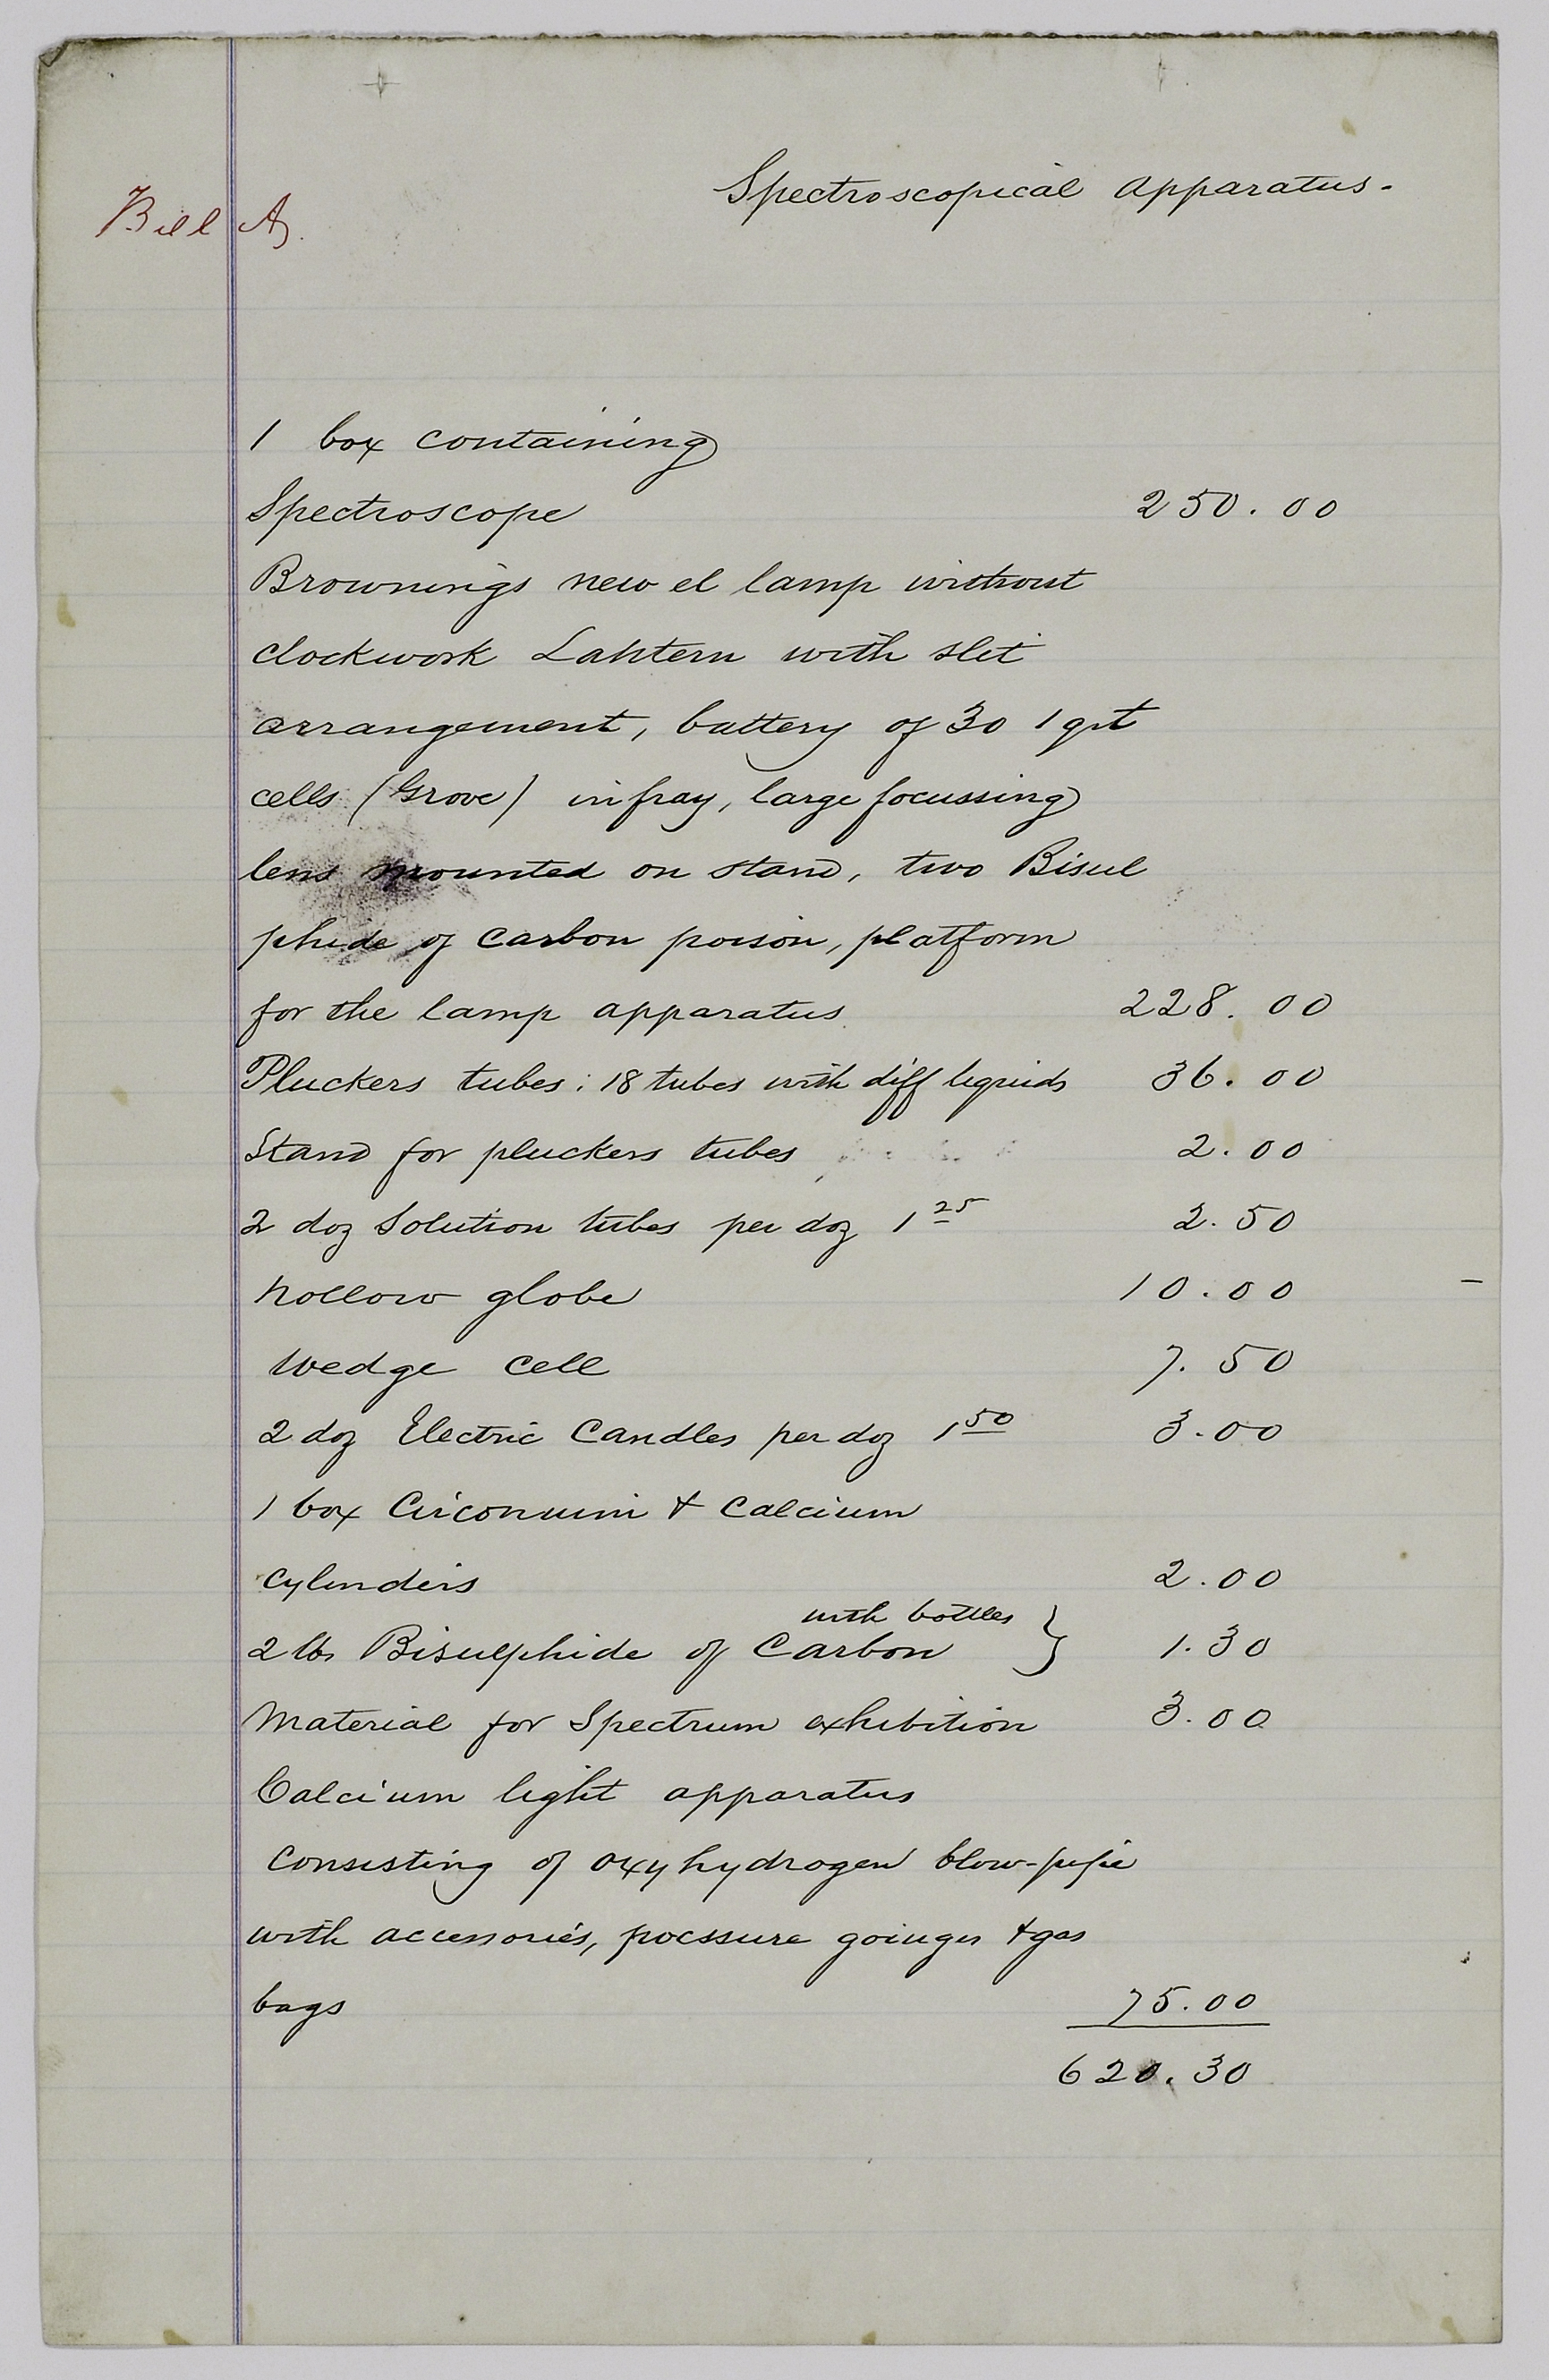 Spectroscopical Apparatus.
Bill A.
1 box containing
Spectroscope 250.00
Brownings new el lamp without
clockwork Lahtern with slit
arrangement, battery of 30 1 qrt
cells (Grove) infray, large focussing
lens mounted on stand, two Bisul
phide of Carbon poison, platform
for the lamp apparatus 228.00
Pluckers tubes: 18 tubes with diff liquids 36.00
Stand for pluckers tubes 2.00
2 doz Solution tubes per doz 1 25 2.50
hollow globe 10.00 –
Wedge Cell 7.50
2 doz Electric Candles per doz 1 50 3.00
1 box Circonium & Calcium
Cylinders 2.00
with bottles
2 lbs Bisulphide of Carbon } 1.30
Material for Spectrum exhibition 3.00
Calcium light apparatus
Consisting of oxyhydrogen blow-pipe
with accessories, pocssure goinges & gas
bags 75.00
620.30